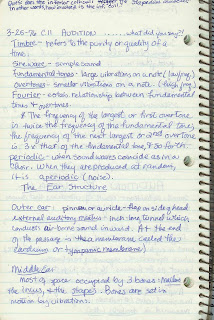 Does the inferior colliculi
In other words, how involved is the inf. coll.?
3-25-76 C.11 AUDITION ...... what did you say??
Timbre - refers to the purity or quality of a
tone.
Sine wave - simple sound
fundamental tones - large vibrations on a note (buying)
overtones - smaller vibrations on a note. (high freq)
Fourier - establ. relationship between fundamental
tones & overtones.
& The frequency of the largest or first overtone
is twice the frequency of the fundamental tone;
the frequency of the next largest or 2nd overtone
is 3x that of the fundamental tone, & so forth.
periodic - when sound waves coincide as in a
choir. When they are produced at random,
it is aperiodic (noise).
The Ear Structure
Outer ear: pinna or auricle - flap on side of head
external auditory meatus - inch long tunnel which
conducts air-borne sound inward. At the end
of the passage is the membrane called the
eardrum or tympanic membrane)
Middle Ear
most of space occupied by 3 bones: Malleus
the incus, & the stapes). Bones are set in
motion by vibrations.